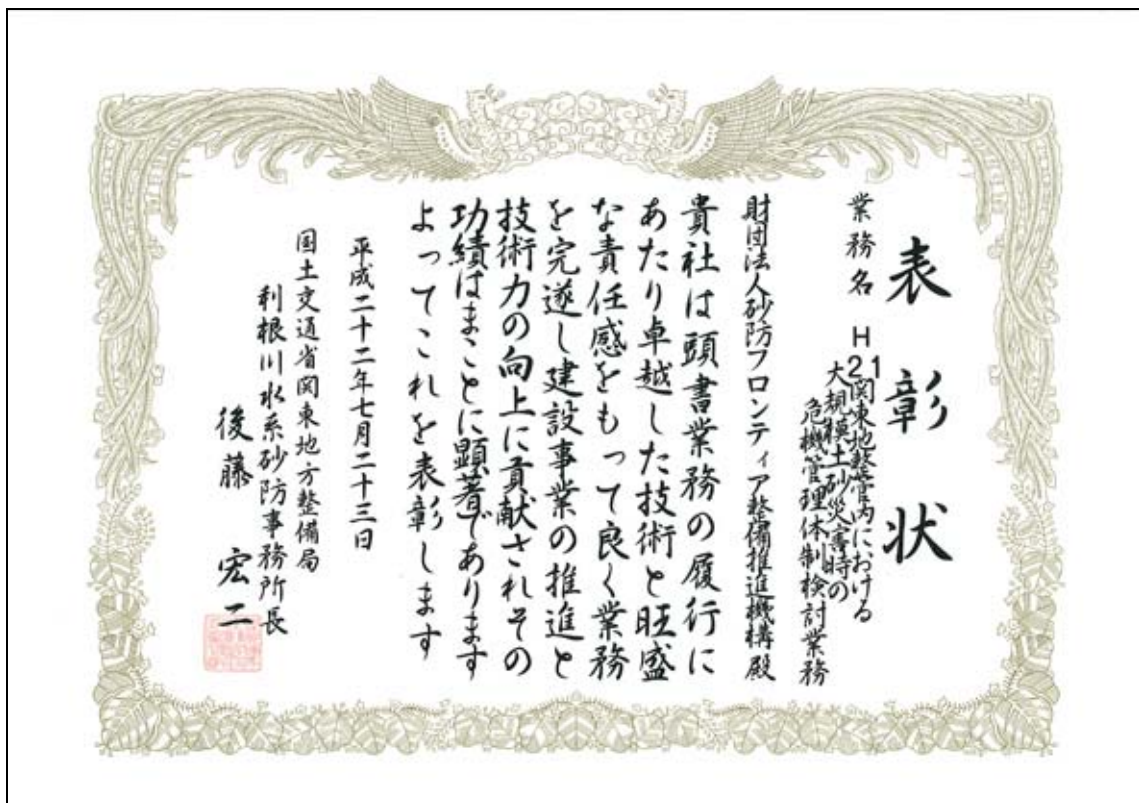 表彰状
業務名 H21関東地整管内における
大規模土砂災害時の
危機管理体制検討業務
財団法人砂防フロンティア整備推進機構殿
貴社は頭書業務の履行に
あたり卓越した技術と旺盛
な責任感をもって良く業務
を完遂し建設事業の推進と
技術力の向上に貢献されその
功績はまことに顕著であります
よってこれを表彰します
平成二十二年七月二十三日
国土交通省関東地方整備局
利根川水系砂防事務所長
後藤宏二